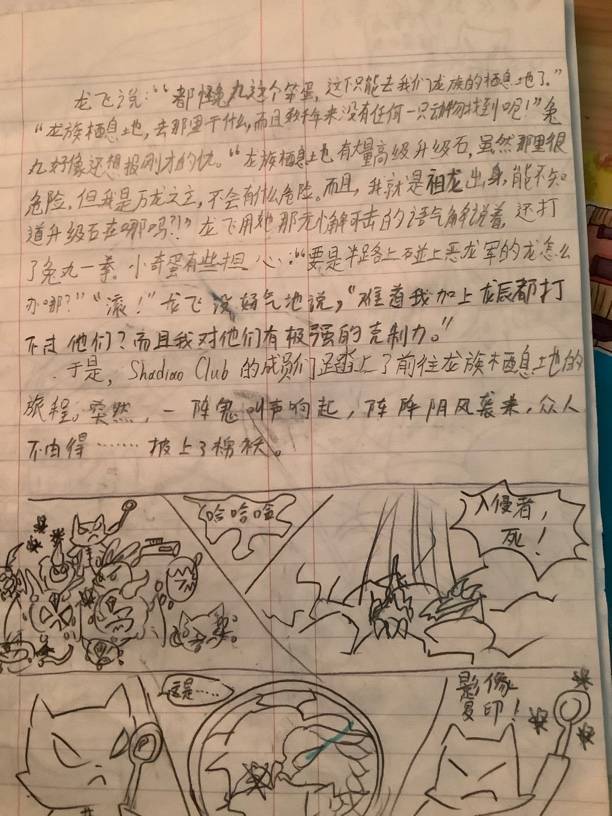 龙飞说："都怪兔九这个笨蛋,这下只能去我们龙族的栖息地了。"
"龙族栖息地,去那里干什么,而且数千年来没有任何一只动物找到呢!"兔
九好像还想报刚才的仇。"龙族栖息地有大量高级升级石,虽然那里很
危险,但我是万龙之王,不会有什么危险。而且,我就是祖龙出身,能不知
道升级石在哪吗?!"龙飞用她那无懈可击的语气解说着,还打
了兔九一拳。小奇蛋有些担心："要是半路上碰上恶龙军的龙怎么
办哪?""滚!"龙飞没好气地说,"难道我加上龙辰都打
不过他们?而且我对他们有极强的克制力。"
于是,Shadiao Club 的成员们踏上了前往龙族栖息地的
旅程。突然,一阵鬼叫声响起,阵阵阴风袭来,众人
不由得……披上了棉袄。
哈哈哈
入侵者,
死!
这是……
影像
复印!